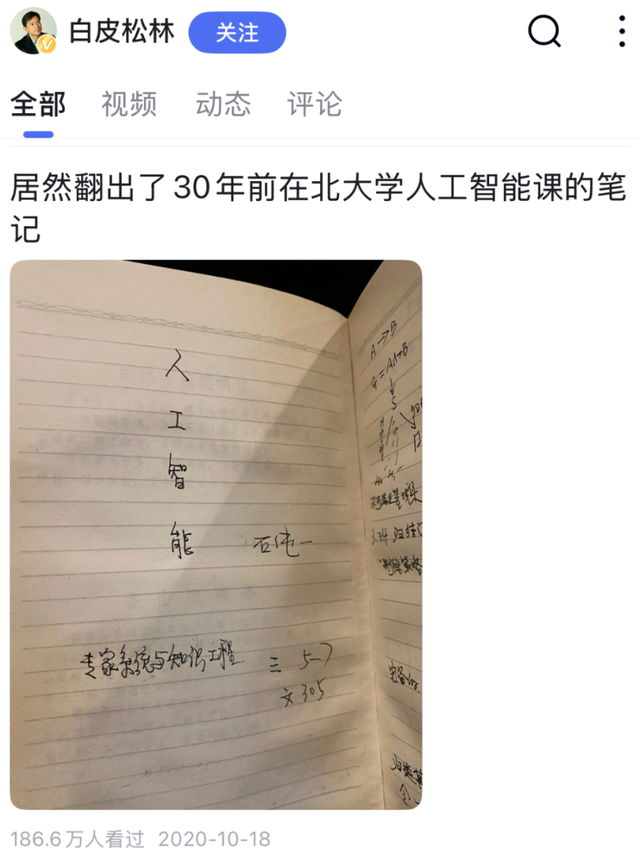 白皮松林
关注
全部 视频 动态 评论
居然翻出了30年前在北大学人工智能课的笔
记
人
工
智
能 石纯一
专家系统与知识工程 三 5-7
文305
A→B
186.6万人看过 2020-10-18